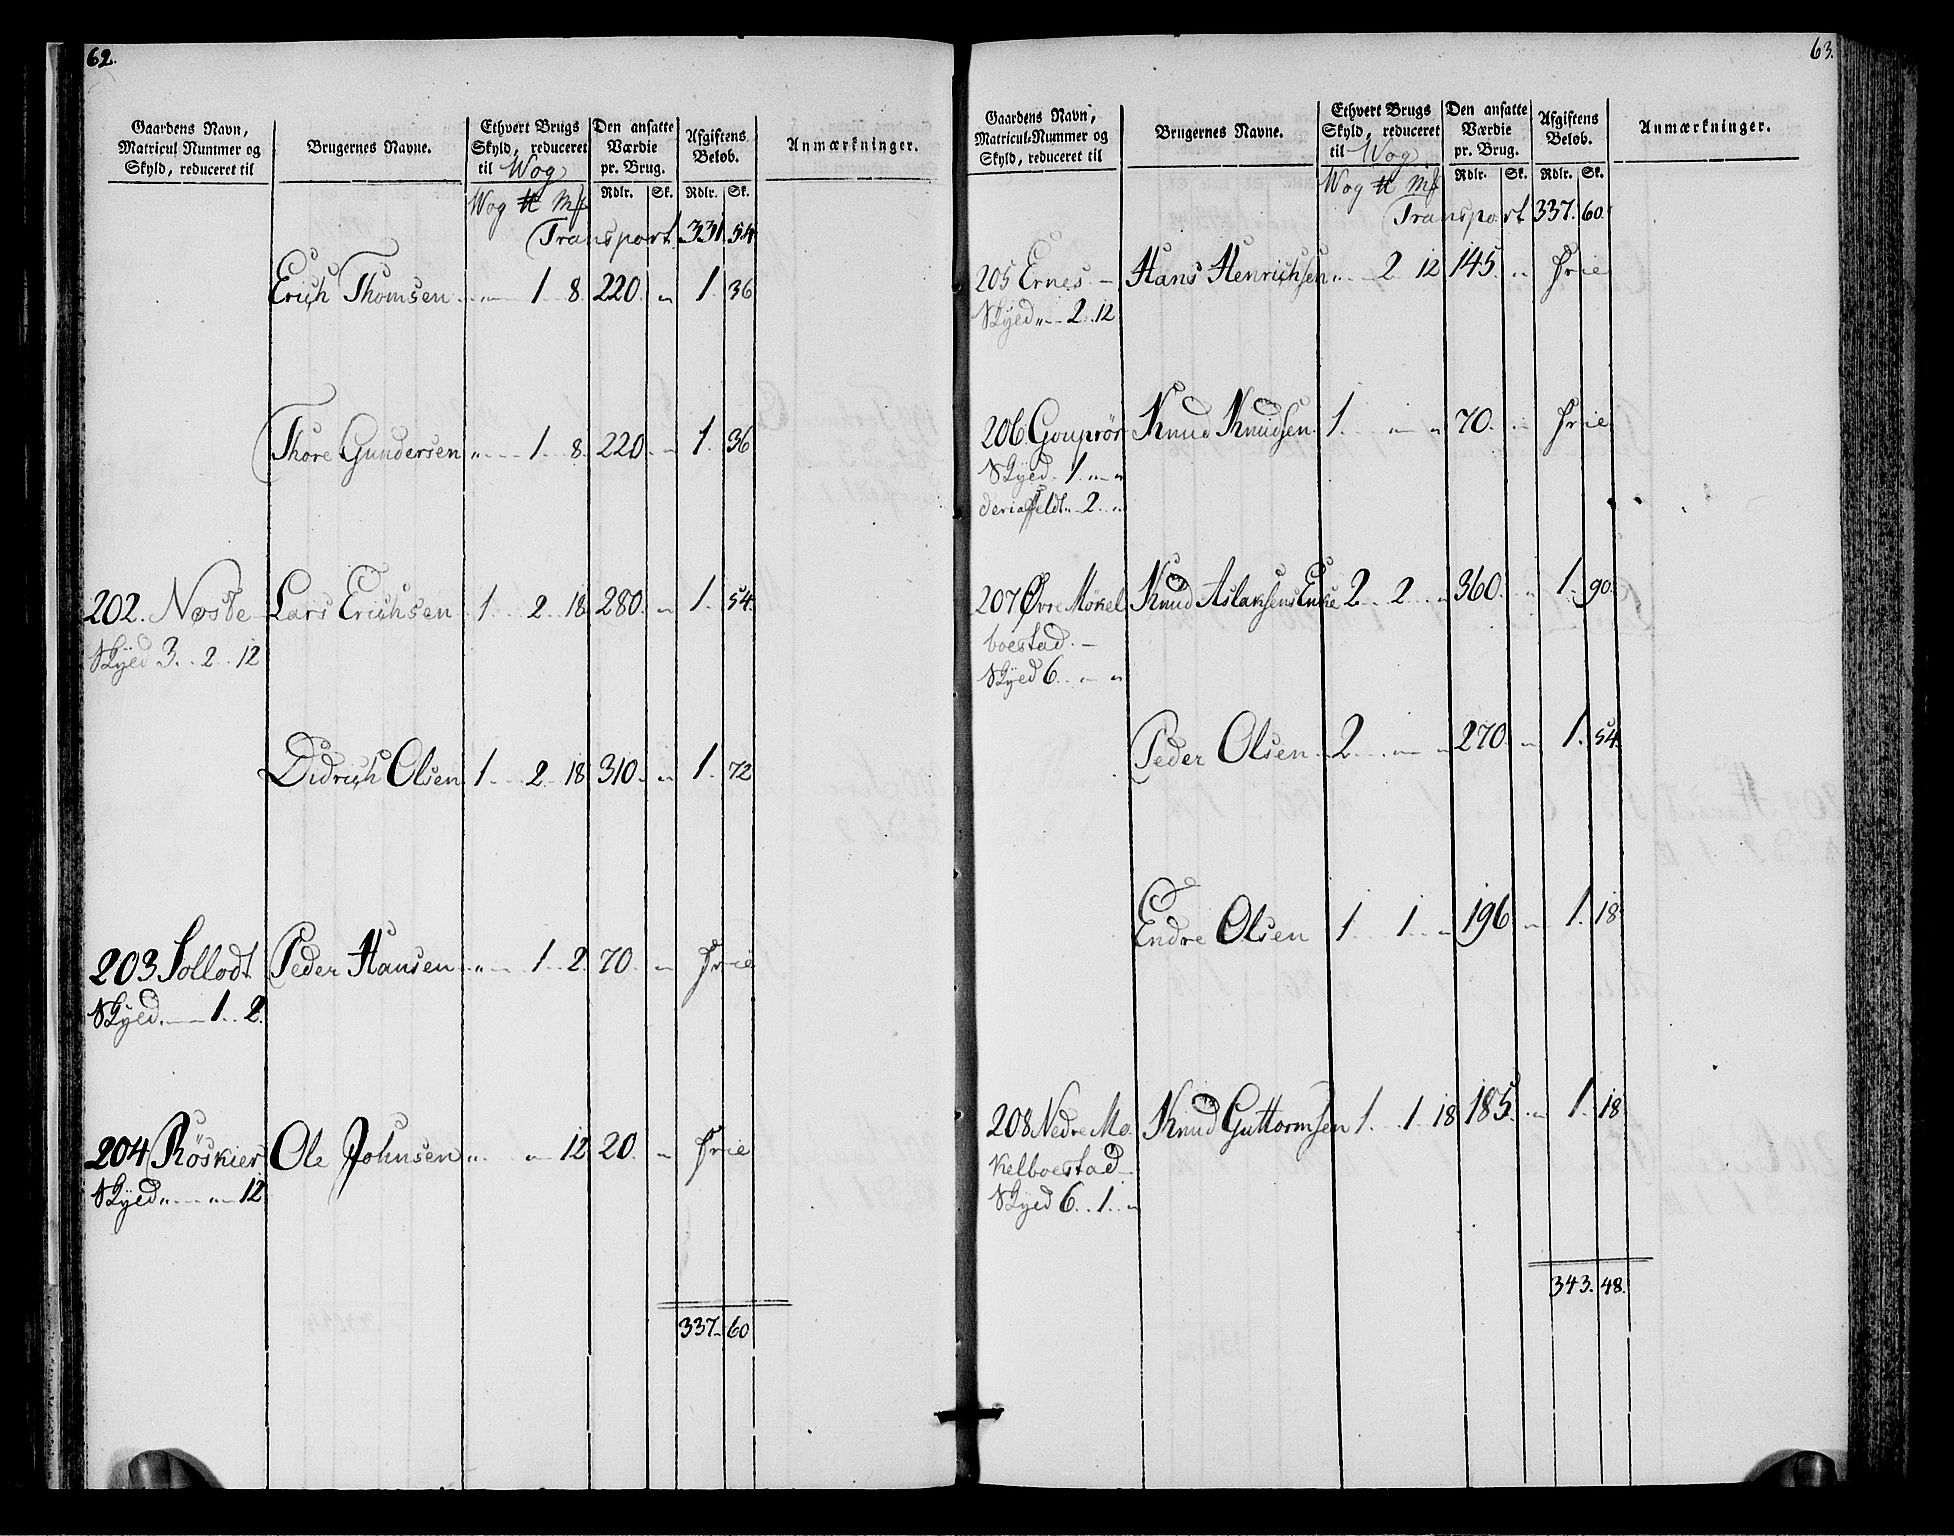 62.
Gaardens Navn, Matricul Nummer og Skyld, reduceret til
Brugernes Navne.
Ethvert Brugs Skyld, reduceret til Wog
Den ansatte Værdie pr. Brug.
Afgiftens Beløb.
Anmærkninger.
Wog ℔ Mk Rdlr. Sk. Rdlr. Sk.
Transport 331 54
Erich Thomsen „ 1 8 220 „ 1 36
Thore Gundersen „ 1 8 220 „ 1 36
202. Nøste Lars Erichsen 1 2 18 280 „ 1 54
Skyld 3 2 12
Didrich Olsen 1 2 18 310 „ 1 72
203 Sollodt Peder Hansen „ 1 2 70 „ frie
Skyld 1 2
204 Röskier Ole Johnsen „ „ 12 20 „ frie
Skyld „ „ 12
337 60
63.
Gaardens Navn, Matricul-Nummer og Skyld, reduceret til
Brugernes Navne.
Ethvert Brugs Skyld, reduceret til Wog
Den ansatte Værdie pr. Brug.
Afgiftens Beløb.
Anmærkninger.
Wog ℔ Mk Rdlr. Sk. Rdlr. Sk.
Transport 337. 60
205 Ernes Hans Henrichsen „ 2 12 145 „ frie
Skyld „ 2 12
206 Knud Knudsen 1 „ „ 70 „ frie
Skyld 1 „ „
2 „
207 Øvre Mökel Knud Aslaksens Enke 2 2 „ 360 „ 1 90
boestad
Skyld 6 „ „
Peder Olsen 2 „ „ 270 „ 1 54
Endre Olsen 1 1 „ 196 „ 1 18
208 Nedre Mö Knud Guttormsen 1 1 18 185 „ 1 18
kelboestad
Skyld 6 1 „
343. 48.